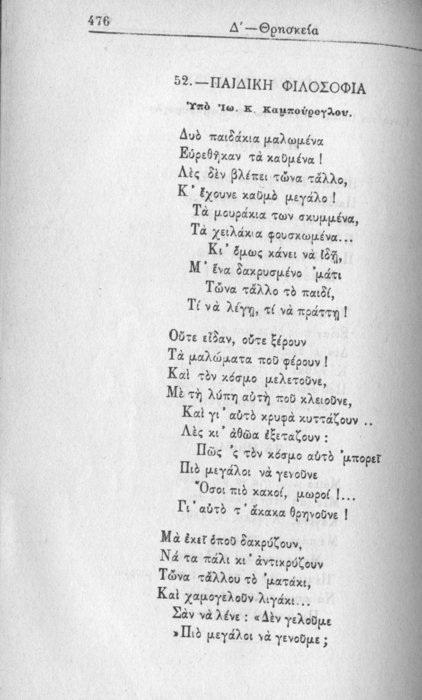 476
Δ'—Θρησκεία
52.—ΠΑΙΔΙΚΗ ΦΙΛΟΣΟΦΙΑ
Ὑπὸ Ἰω. Κ. Καμπούρογλου.
Δυὸ παιδάκια μαλωμένα
Εὑρεθῆκαν τὰ καϋμένα !
Λὲς δὲν βλέπει τὦνα τἄλλο,
Κ' ἔχουνε καϋμὸ μεγάλο !
Τὰ μουράκια των σκυμμένα,
Τὰ χειλάκια φουσκωμένα...
Κι' ὅμως κάνει νὰ ἰδῇ,
Μ' ἕνα δακρυσμένο 'μάτι
Τὦνα τἄλλο τὸ παιδί,
Τί νὰ λέγῃ, τί νὰ πράττῃ !
Οὔτε εἶδαν, οὔτε ξέρουν
Τὰ μαλώματα ποῦ φέρουν !
Καὶ τὸν κόσμο μελετοῦνε,
Μὲ τὴ λύπη αὐτὴ ποῦ κλειοῦνε,
Καὶ γι' αὐτὸ κρυφὰ κυττάζουν ..
Λὲς κι' ἀθῶα ἐξετάζουν :
Πῶς 'ς τὸν κόσμο αὐτὸ 'μπορεῖ
Πιὸ μεγάλοι νὰ γενοῦνε
Ὅσοι πιὸ κακοί, μωροί !...
Γι' αὐτὸ τ' ἄκακα θρηνοῦνε !
Μὰ ἐκεῖ ὁποῦ δακρύζουν,
Νά τα πάλι κι' ἀντικρύζουν
Τὦνα τἄλλου τὸ 'ματάκι,
Καὶ χαμογελοῦν λιγάκι...
Σὰν νὰ λένε : «Δὲν γελοῦμε
»Πιὸ μεγάλοι νὰ γενοῦμε ;